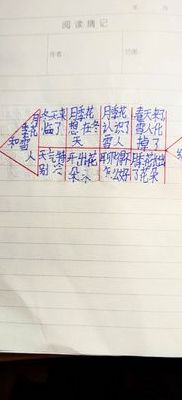 阅读摘记
作者
月季花
和雪
人
冬天来
临了
月季花
想在冬
天
月季花
认识了
雪人
春天来了
雪人化
掉了
天气特
别冷
开出花
朵
聊得
怎么好
月季花
了花朵